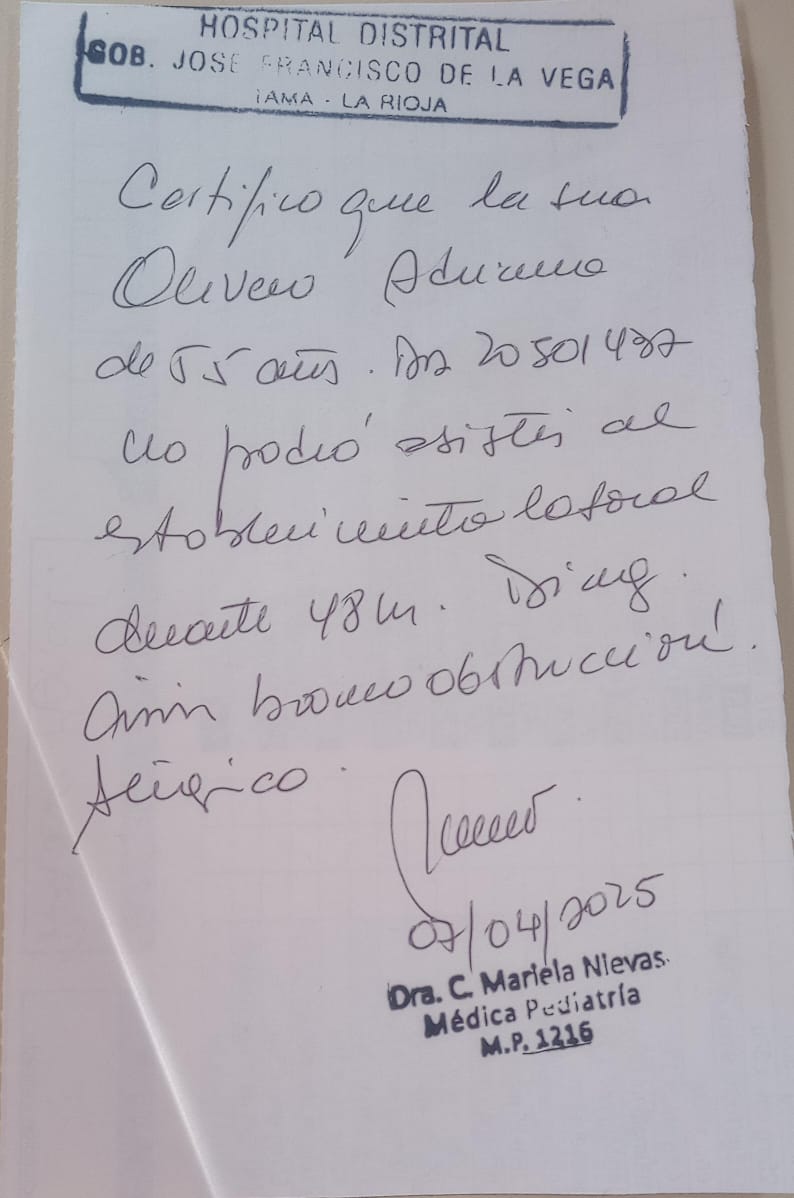 HOSPITAL DISTRITAL
GOB. JOSE FRANCISCO DE LA VEGA
TAMA - LA RIOJA
Certifico que la sra
Olivero Adriana
de 55 años. 20501437
no podrá asistir al
establecimiento laboral
durante 48 hs. Diag.
bronco obstrucción.
Alérgico.
07/04/2025
Dra. C. Mariela Nievas.
Médica Pediatría
M.P. 1216